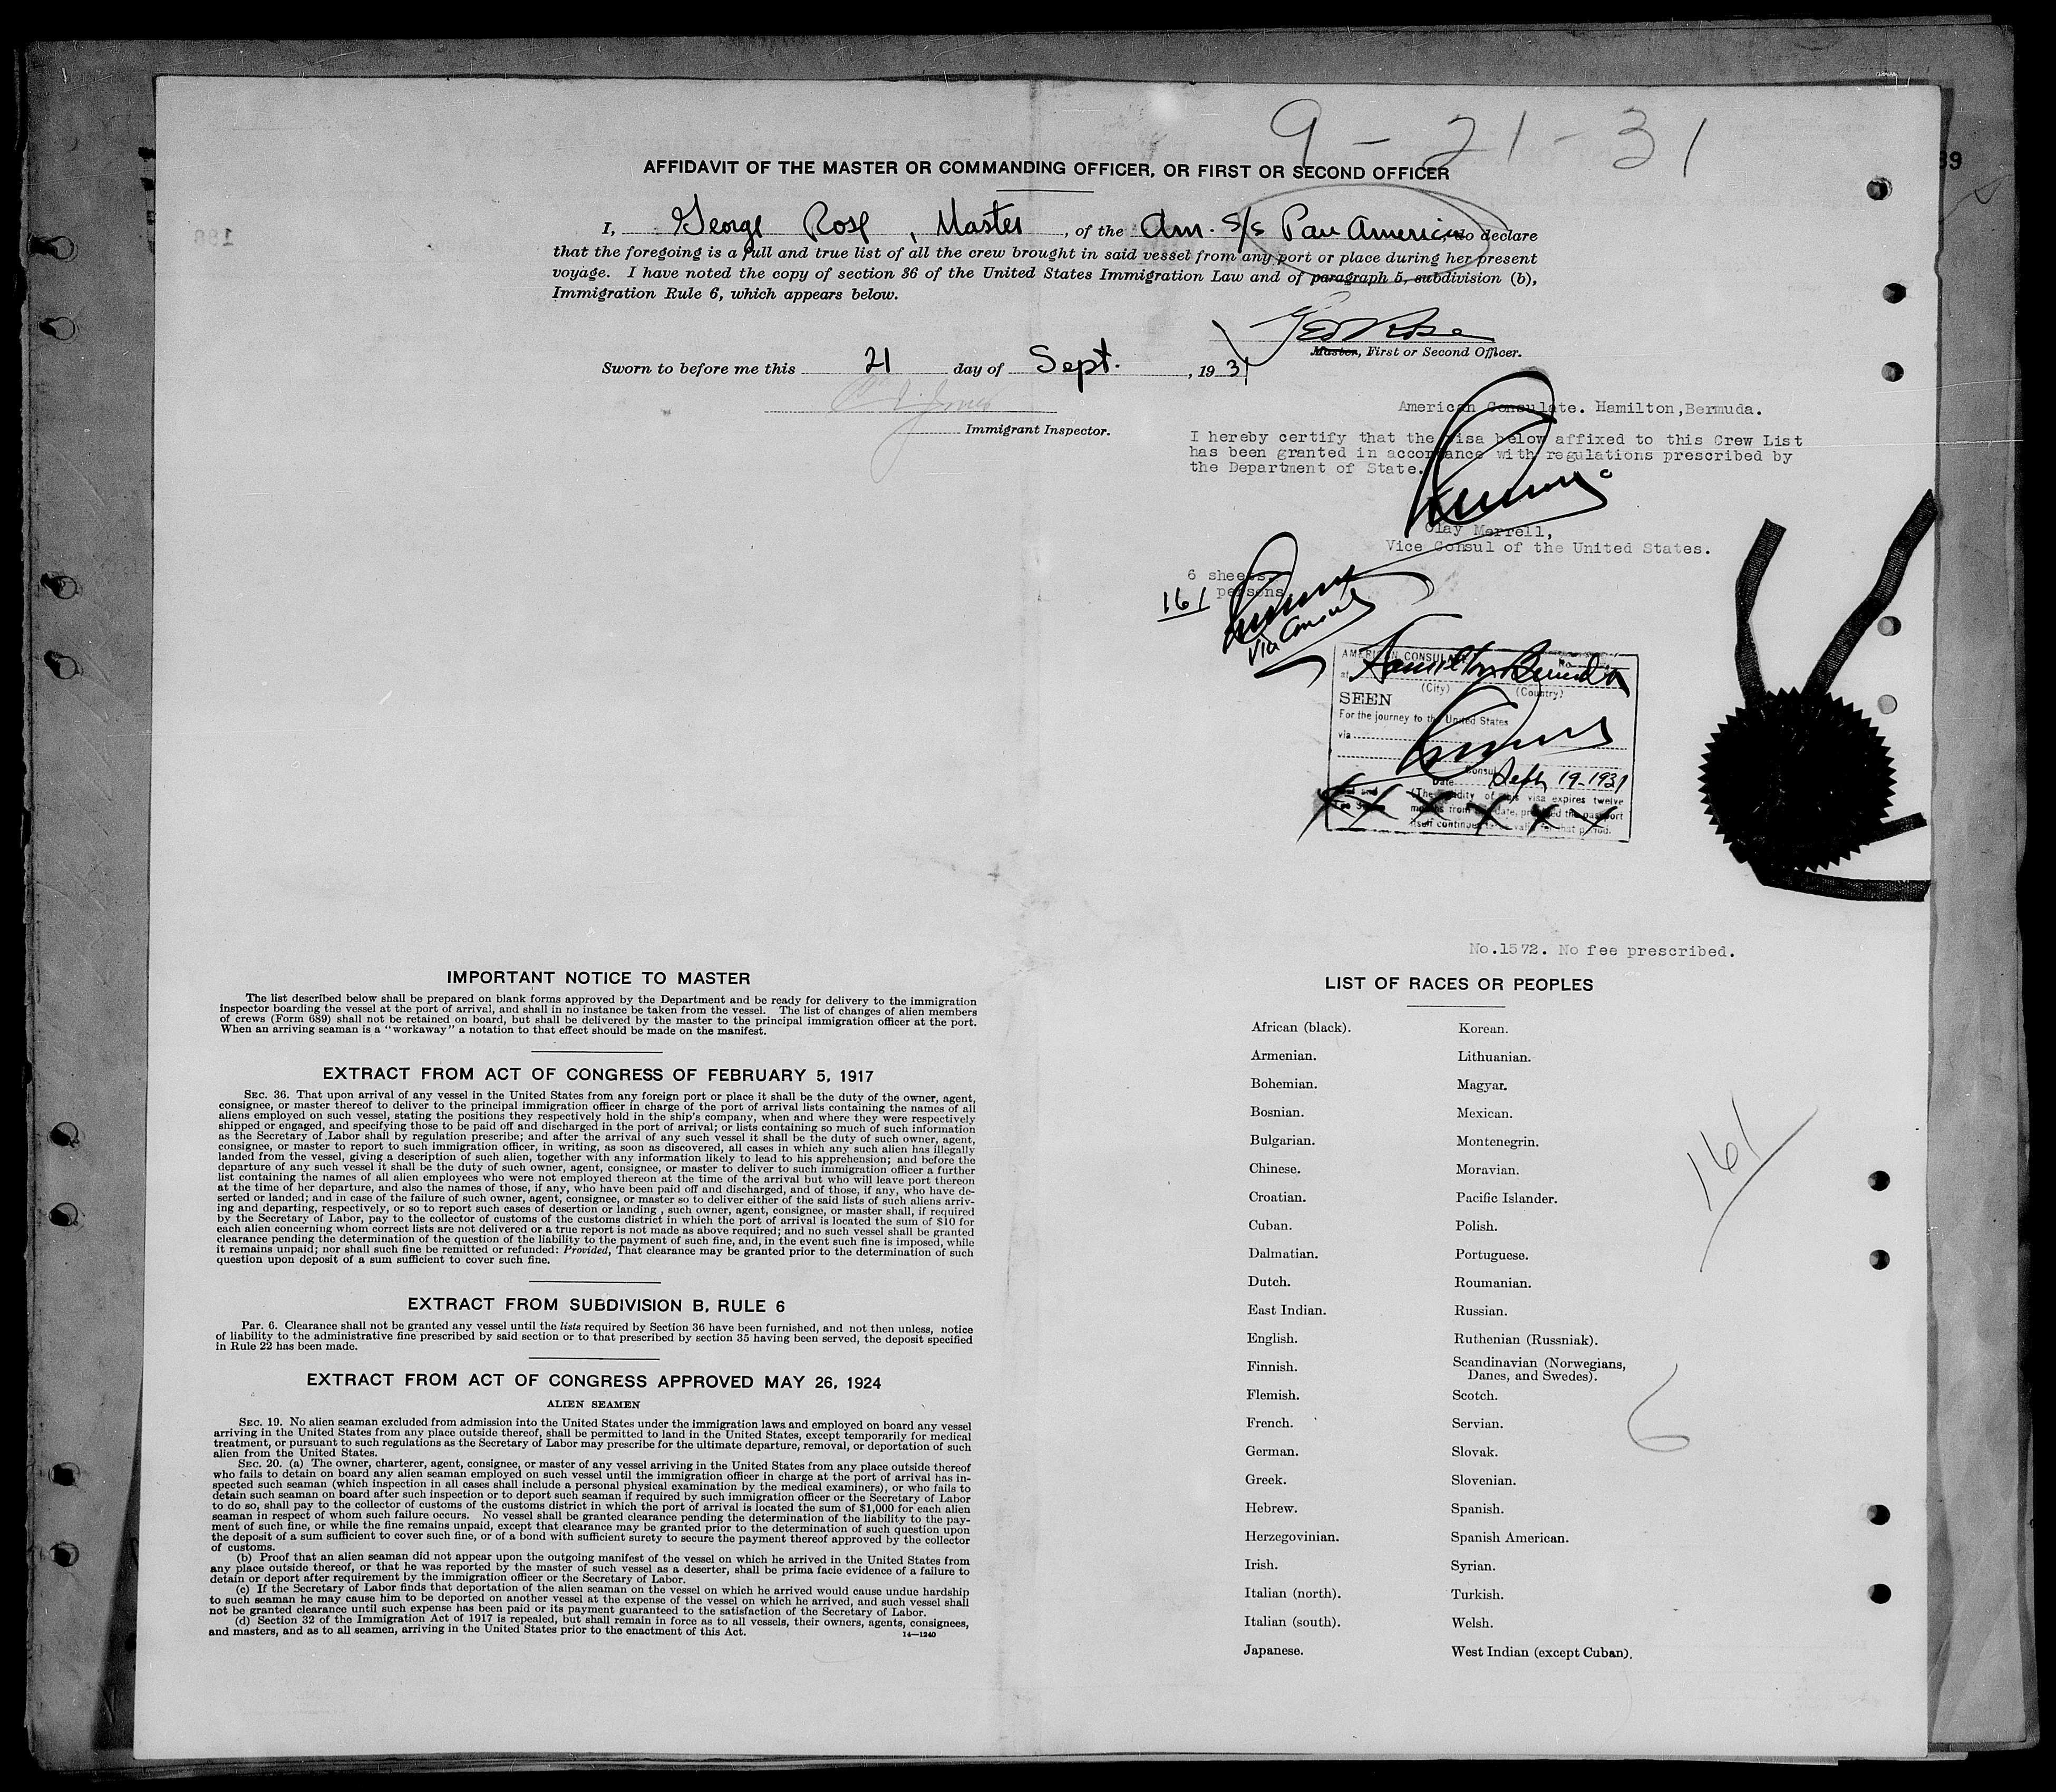 9-21-31
39
AFFIDAVIT OF THE MASTER OR COMMANDING OFFICER, OR FIRST OR SECOND OFFICER
I, George Rose, Master, of the Am. S/s Pan America, do declare
that the foregoing is a full and true list of all the crew brought in said vessel from any port or place during her present
voyage. I have noted the copy of section 36 of the United States Immigration Law and of paragraph 5, subdivision (b),
Immigration Rule 6, which appears below.
Geo Rose
Master, First or Second Officer.
Sworn to before me this 21 day of Sept., 1931
Immigrant Inspector.
American Consulate. Hamilton,Bermuda.
I hereby certify that the visa below affixed to this Crew List
has been granted in accordance with regulations prescribed by
the Department of State.
Clay Merrell,
Vice Consul of the United States.
6 sheets.
161 persons
AMERICAN CONSULATE No.
at Hamilton Bermuda
(City) (Country)
SEEN
For the journey to the United States
via
Consul
Date Sept 19-1931
(The validity of this visa expires twelve
months from this date, provided the passport
itself continues to be valid for that period.
No.1572. No fee prescribed.
IMPORTANT NOTICE TO MASTER
The list described below shall be prepared on blank forms approved by the Department and be ready for delivery to the immigration
inspector boarding the vessel at the port of arrival, and shall in no instance be taken from the vessel. The list of changes of alien members
of crews (Form 689) shall not be retained on board, but shall be delivered by the master to the principal immigration officer at the port.
When an arriving seaman is a "workaway" a notation to that effect should be made on the manifest.
EXTRACT FROM ACT OF CONGRESS OF FEBRUARY 5, 1917
SEC. 36. That upon arrival of any vessel in the United States from any foreign port or place it shall be the duty of the owner, agent,
consignee, or master thereof to deliver to the principal immigration officer in charge of the port of arrival lists containing the names of all
aliens employed on such vessel, stating the positions they respectively hold in the ship's company, when and where they were respectively
shipped or engaged, and specifying those to be paid off and discharged in the port of arrival; or lists containing so much of such information
as the Secretary of Labor shall by regulation prescribe; and after the arrival of any such vessel it shall be the duty of such owner, agent,
consignee, or master to report to such immigration officer, in writing, as soon as discovered, all cases in which any such alien has illegally
landed from the vessel, giving a description of such alien, together with any information likely to lead to his apprehension; and before the
departure of any such vessel it shall be the duty of such owner, agent, consignee, or master to deliver to such immigration officer a further
list containing the names of all alien employees who were not employed thereon at the time of the arrival but who will leave port thereon
at the time of her departure, and also the names of those, if any, who have been paid off and discharged, and of those, if any, who have de-
serted or landed; and in case of the failure of such owner, agent, consignee, or master so to deliver either of the said lists of such aliens arriv-
ing and departing, respectively, or so to report such cases of desertion or landing , such owner, agent, consignee, or master shall, if required
by the Secretary of Labor, pay to the collector of customs of the customs district in which the port of arrival is located the sum of $10 for
each alien concerning whom correct lists are not delivered or a true report is not made as above required; and no such vessel shall be granted
clearance pending the determination of the question of the liability to the payment of such fine, and, in the event such fine is imposed, while
it remains unpaid; nor shall such fine be remitted or refunded: Provided, That clearance may be granted prior to the determination of such
question upon deposit of a sum sufficient to cover such fine.
EXTRACT FROM SUBDIVISION B, RULE 6
Par. 6. Clearance shall not be granted any vessel until the lists required by Section 36 have been furnished, and not then unless, notice
of liability to the administrative fine prescribed by said section or to that prescribed by section 35 having been served, the deposit specified
in Rule 22 has been made.
EXTRACT FROM ACT OF CONGRESS APPROVED MAY 26, 1924
ALIEN SEAMEN
SEC. 19. No alien seaman excluded from admission into the United States under the immigration laws and employed on board any vessel
arriving in the United States from any place outside thereof, shall be permitted to land in the United States, except temporarily for medical
treatment, or pursuant to such regulations as the Secretary of Labor may prescribe for the ultimate departure, removal, or deportation of such
alien from the United States.
SEC. 20. (a) The owner, charterer, agent, consignee, or master of any vessel arriving in the United States from any place outside thereof
who fails to detain on board any alien seaman employed on such vessel until the immigration officer in charge at the port of arrival has in-
spected such seaman (which inspection in all cases shall include a personal physical examination by the medical examiners), or who fails to
detain such seaman on board after such inspection or to deport such seaman if required by such immigration officer or the Secretary of Labor
to do so, shall pay to the collector of customs of the customs district in which the port of arrival is located the sum of $1,000 for each alien
seaman in respect of whom such failure occurs. No vessel shall be granted clearance pending the determination of the liability to the pay-
ment of such fine, or while the fine remains unpaid, except that clearance may be granted prior to the determination of such question upon
the deposit of a sum sufficient to cover such fine, or of a bond with sufficient surety to secure the payment thereof approved by the collector
of customs.
(b) Proof that an alien seaman did not appear upon the outgoing manifest of the vessel on which he arrived in the United States from
any place outside thereof, or that he was reported by the master of such vessel as a deserter, shall be prima facie evidence of a failure to
detain or deport after requirement by the immigration officer or the Secretary of Labor.
(c) If the Secretary of Labor finds that deportation of the alien seaman on the vessel on which he arrived would cause undue hardship
to such seaman he may cause him to be deported on another vessel at the expense of the vessel on which he arrived, and such vessel shall
not be granted clearance until such expense has been paid or its payment guaranteed to the satisfaction of the Secretary of Labor.
(d) Section 32 of the Immigration Act of 1917 is repealed, but shall remain in force as to all vessels, their owners, agents, consignees,
and masters, and as to all seamen, arriving in the United States prior to the enactment of this Act.
14—1240
LIST OF RACES OR PEOPLES
African (black).
Armenian.
Bohemian.
Bosnian.
Bulgarian.
Chinese.
Croatian.
Cuban.
Dalmatian.
Dutch.
East Indian.
English.
Finnish.
Flemish.
French.
German.
Greek.
Hebrew.
Herzegovinian.
Irish.
Italian (north).
Italian (south).
Japanese.
Korean.
Lithuanian.
Magyar.
Mexican.
Montenegrin.
Moravian.
Pacific Islander.
Polish.
Portuguese.
Roumanian.
Russian.
Ruthenian (Russniak).
Scandinavian (Norwegians,
Danes, and Swedes).
Scotch.
Servian.
Slovak.
Slovenian.
Spanish.
Spanish American.
Syrian.
Turkish.
Welsh.
West Indian (except Cuban).
161
6